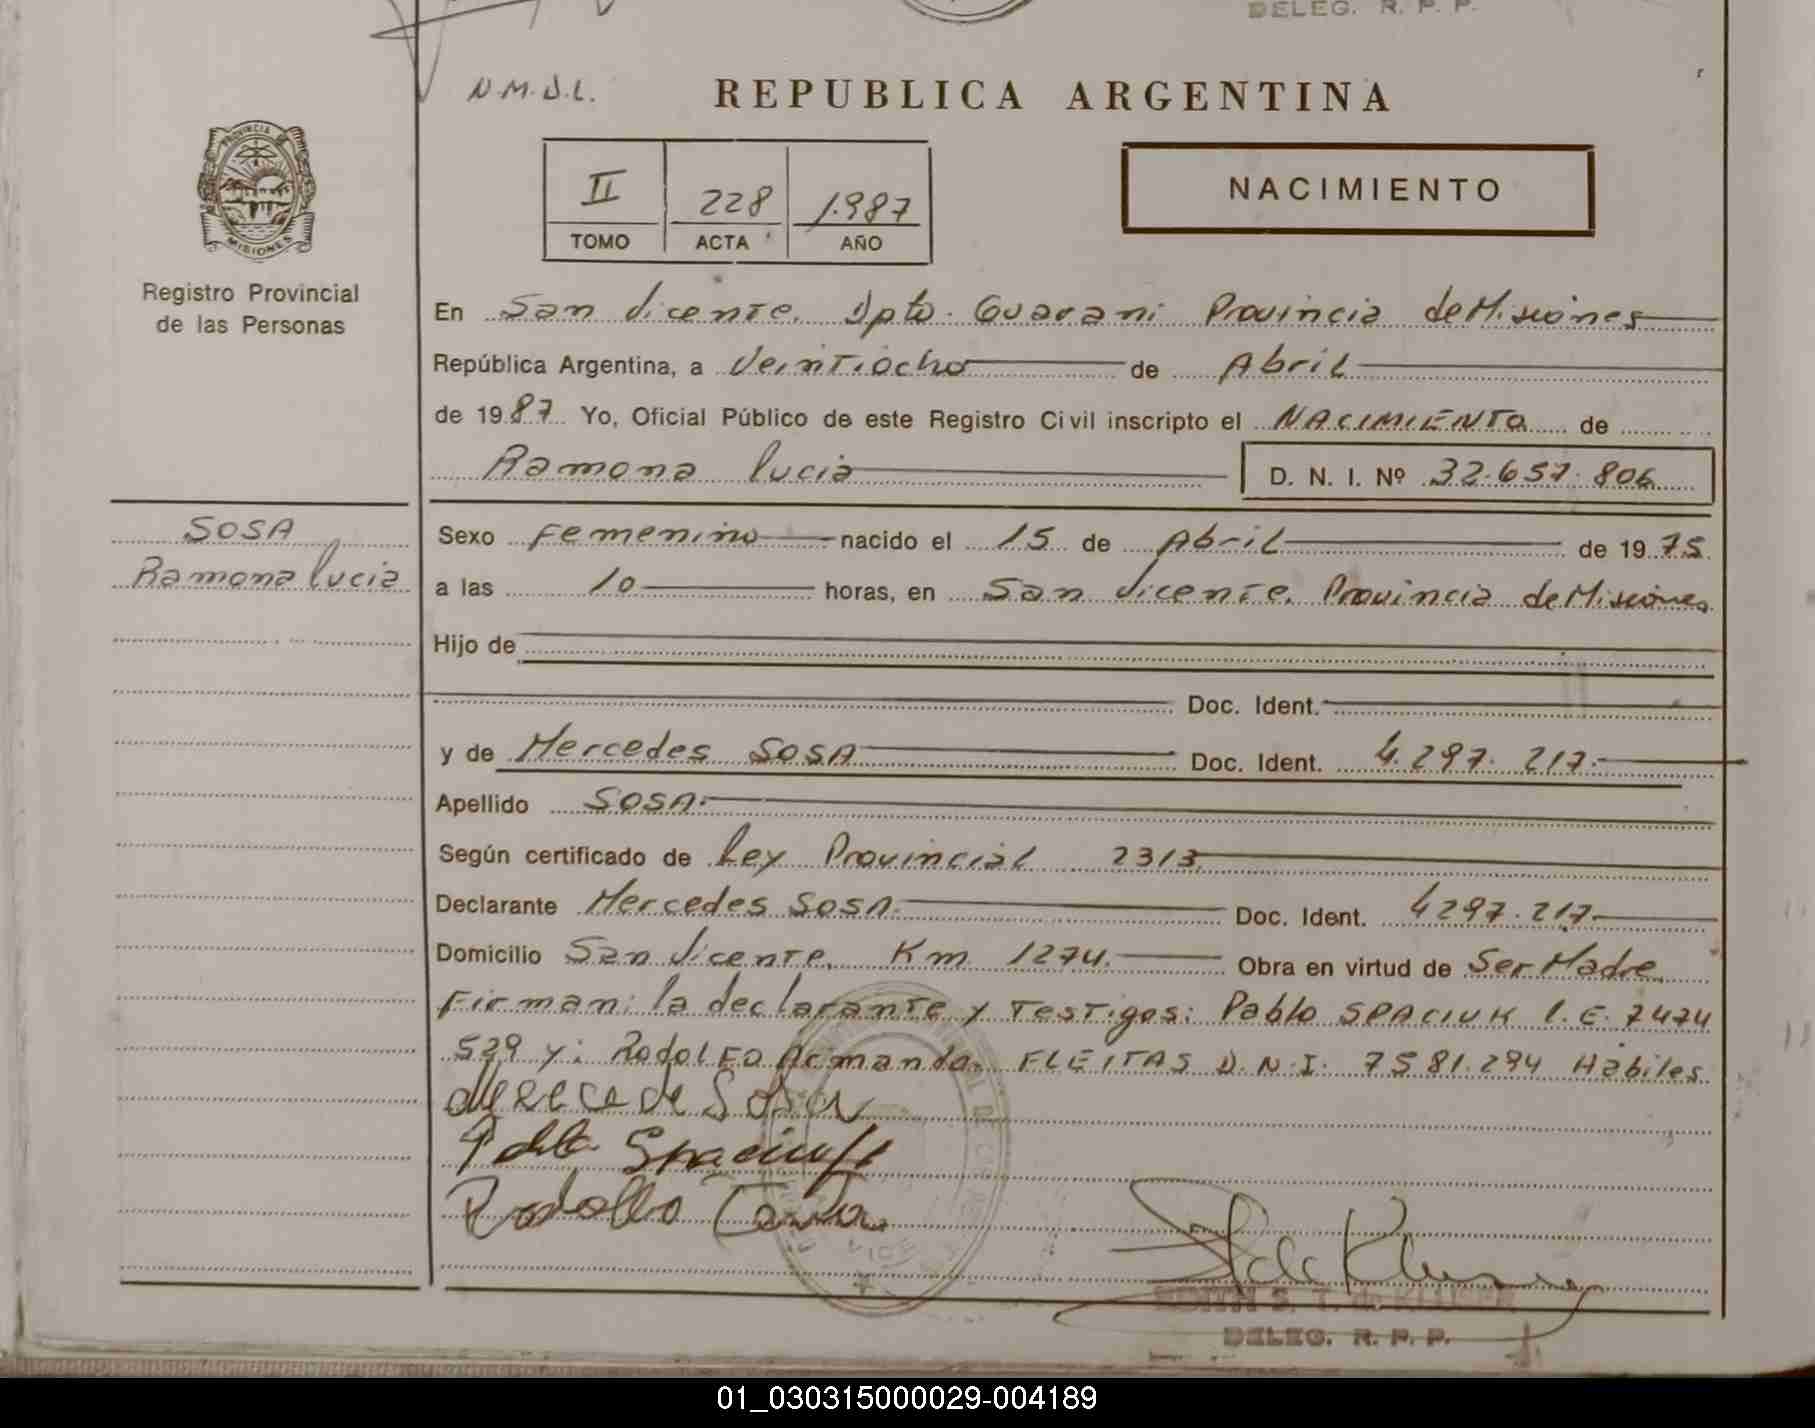 DELEG. R. P. P.
N.M.S.L.
REPUBLICA ARGENTINA
PROVINCIA DE
MISIONES
II 228 1.987
TOMO ACTA AÑO
NACIMIENTO
Registro Provincial
de las Personas
En San Vicente. Dpto. Guarani Provincia de Misiones
República Argentina, a Veintiocho de Abril
de 1987 Yo, Oficial Público de este Registro Civil inscripto el NACIMIENTO de
Ramona Lucia D. N. I. Nº 32.657.806
SOSA
Ramona Lucia
Sexo Femenino nacido el 15 de Abril de 1975.
a las 10 horas, en San Vicente. Provincia de Misiones
Hijo de
Doc. Ident.
y de Mercedes SOSA Doc. Ident. 4.297.217.
Apellido SOSA.
Según certificado de Ley Provincial 2313
Declarante Mercedes SOSA. Doc. Ident. 4297.217.
Domicilio San Vicente. Km 1274. Obra en virtud de Ser Madre
Firman: la declarante y Testigos: Pablo SPACIUK L.E. 7474
529 y: Rodolfo Armando. FLEITAS D.N.I. 7581.294 Hábiles.
Mercede Sosa
Pablo Spaciuk
Rodolfo
EDITH S. T. de KLUSEN
DELEG. R. P. P.
01_030315000029-004189